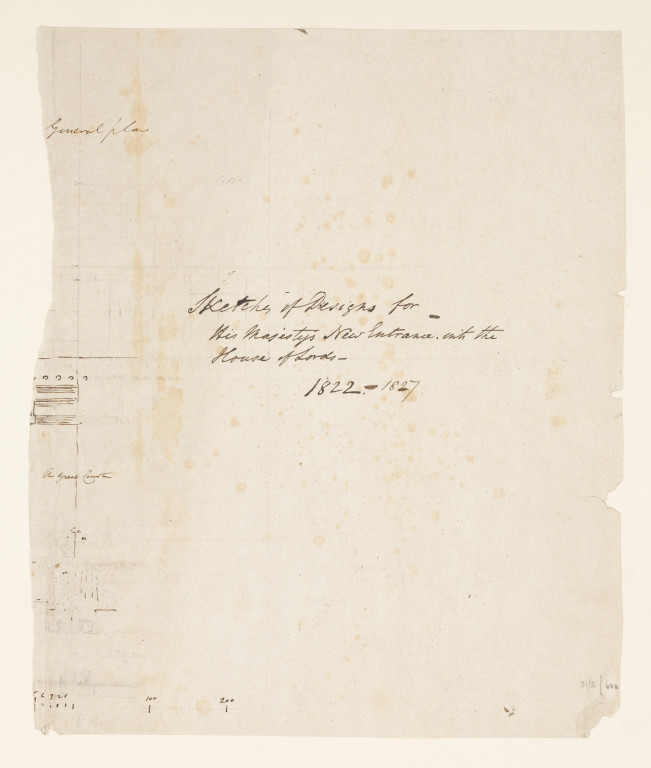 General plan
Sketches of Designs for
His Majestys New Entrance into the
House of Lords
1822 - 1827
A Great Court
100 200
71/2